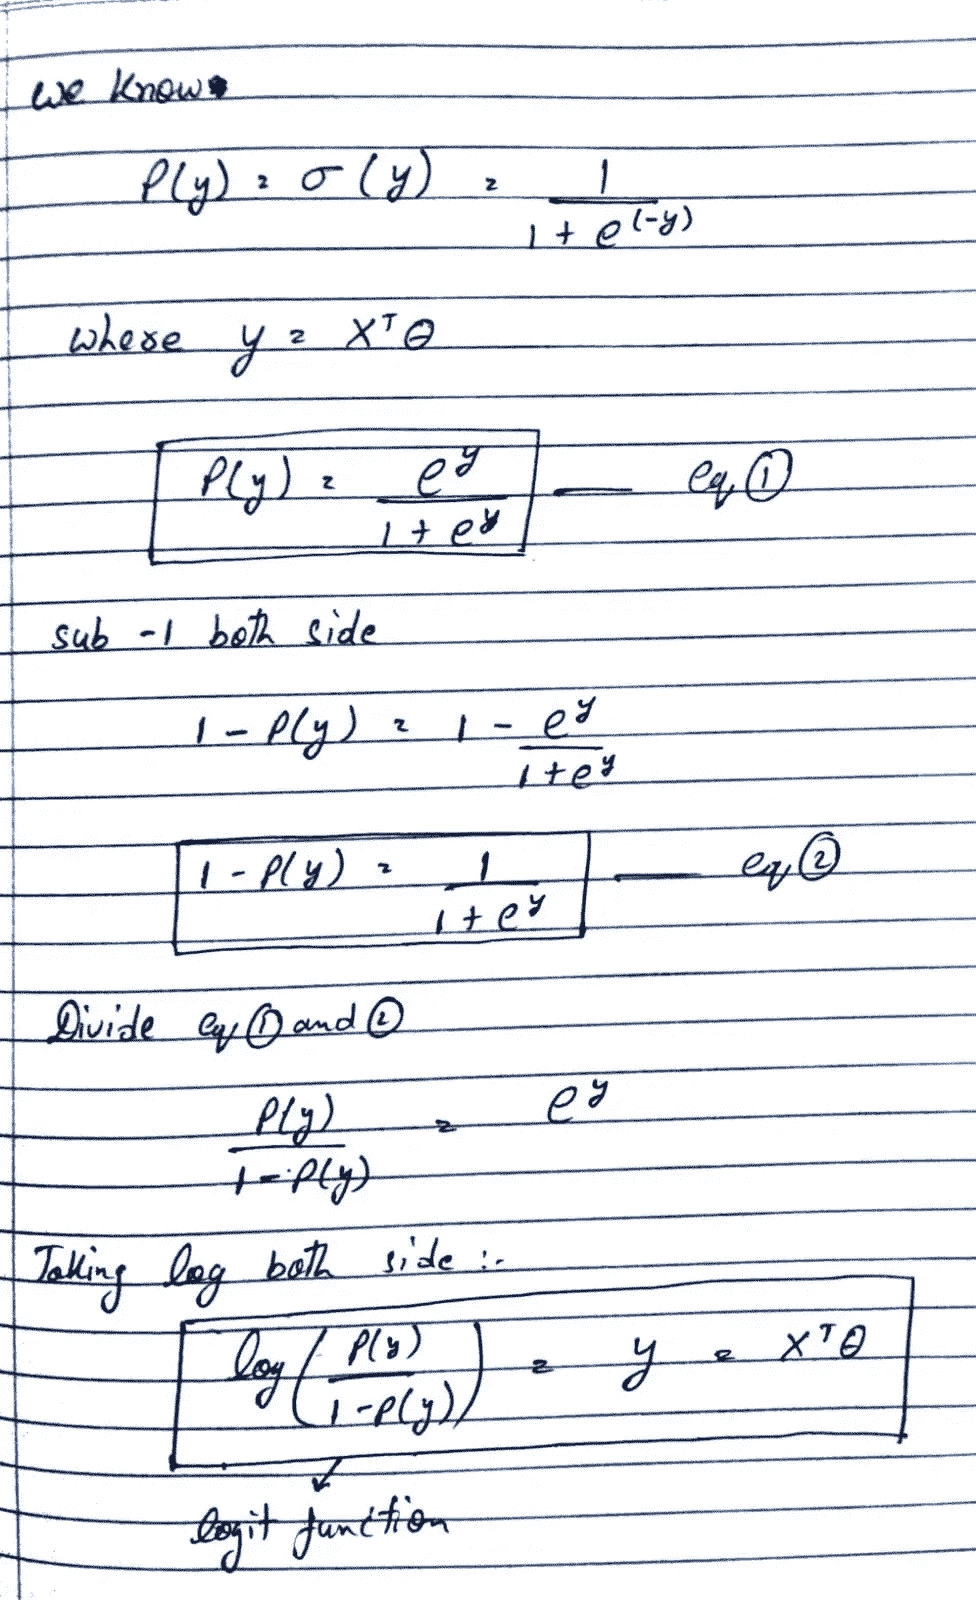 we know
P(y) = σ(y) = 1 / (1 + e^(-y))
where y = X^T θ
P(y) = e^y / (1 + e^y) — eq ①
sub -1 both side
1 - P(y) = 1 - e^y / (1 + e^y)
1 - P(y) = 1 / (1 + e^y) — eq ②
Divide eq ① and ②
P(y) / (1 - P(y)) = e^y
Taking log both side :-
log( P(y) / (1 - P(y)) ) = y = X^T θ
logit function